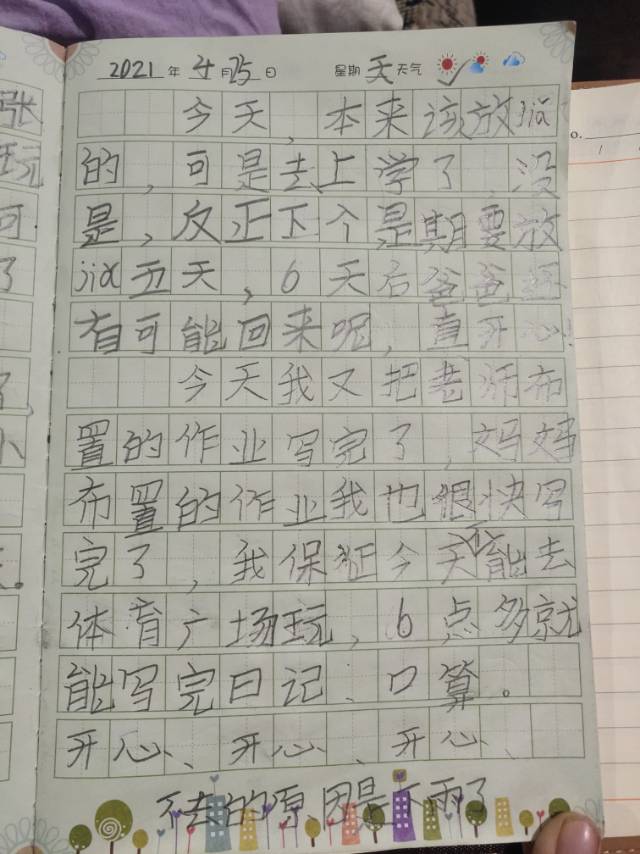 2021 年 4 月 25 日 星期 天 天气
今天，本来该放jià
的，可是去上学了，没
是，反正下个是期要放
jià五天，6天后爸爸还
有可能回来呢，真开心
今天我又把老师布
置的作业写完了，妈妈
布置的作业我也很快写
完了，我保证今天不能去
体育广场玩，6点多就
能写完日记、口算。
开心、开心、开心、
不去的原因是下雨了
张
玩
可
了
了，
小